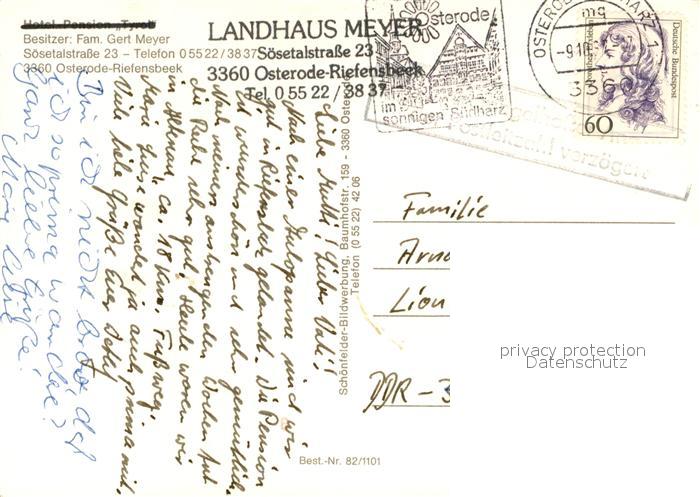 Hotel-Pension "Tyrol"
Besitzer: Fam. Gert Meyer
Sösetalstraße 23 – Telefon 0 55 22 / 38 37
3360 Osterode-Riefensbeek
LANDHAUS MEYER
Sösetalstraße 23
3360 Osterode-Riefensbeek
Tel. 0 55 22 / 38 37
Osterode
im
sonnigen Südharz
OSTERODE HARZ 1
mg
-9.10
3360
Deutsche Bundespost
60
Postleitzahl verzögert
Liebe Mutti! Lieber Vati!
Nach einer Autopanne sind wir
gut in Riefensbeek gelandet. Die Pension
ist wunderschön und sehr gemütlich.
Nach meinen anstrengenden Wochen tut
die Ruhe sehr gut. Heute waren wir
in Altenau, ca. 18 km Fußweg.
wandert ja auch prima mit.
Viele liebe Grüße Euer
Bin ich nicht brav, daß
ich so prima wandere?
Ganz liebe Grüße!
Schönfelder-Bildwerbung, Baumhofstr. 159 - 3360 Osterode
Telefon (0 55 22) 42 06
Familie
Arno
Lion
DDR – 3
privacy protection
Datenschutz
Best.-Nr. 82/1101